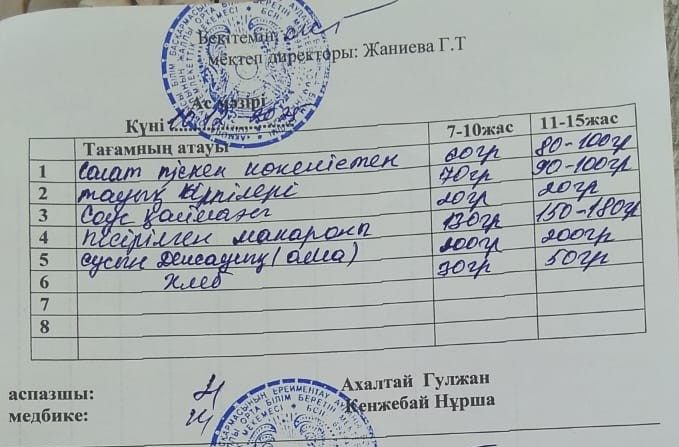 Бекітемін
мектеп директоры: Жаниева Г.Т
Ас мәзірі
Күні
Тағамның атауы 7-10жас 11-15жас
1 Салат піскен көкөністен 60гр 80-100гр
2 тауық кірпілері 70гр 90-100гр
3 Соус 20гр 20гр
4 пісірілген макарон 130гр 150-180гр
5 сусын Денсаулық (алма) 200гр 200гр
6 Хлеб 30гр 50гр
7
8
аспазшы: Ахалтай Гулжан
медбике: Кенжебай Нұрша